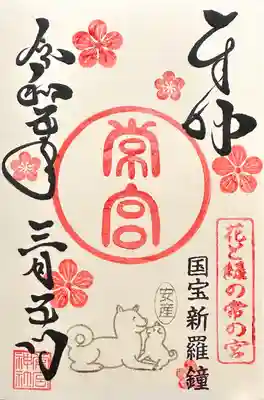 奉拝
常宮
国宝新羅鐘
花と緑の常の宮
安産
令和五年
三月五日
常宮神社